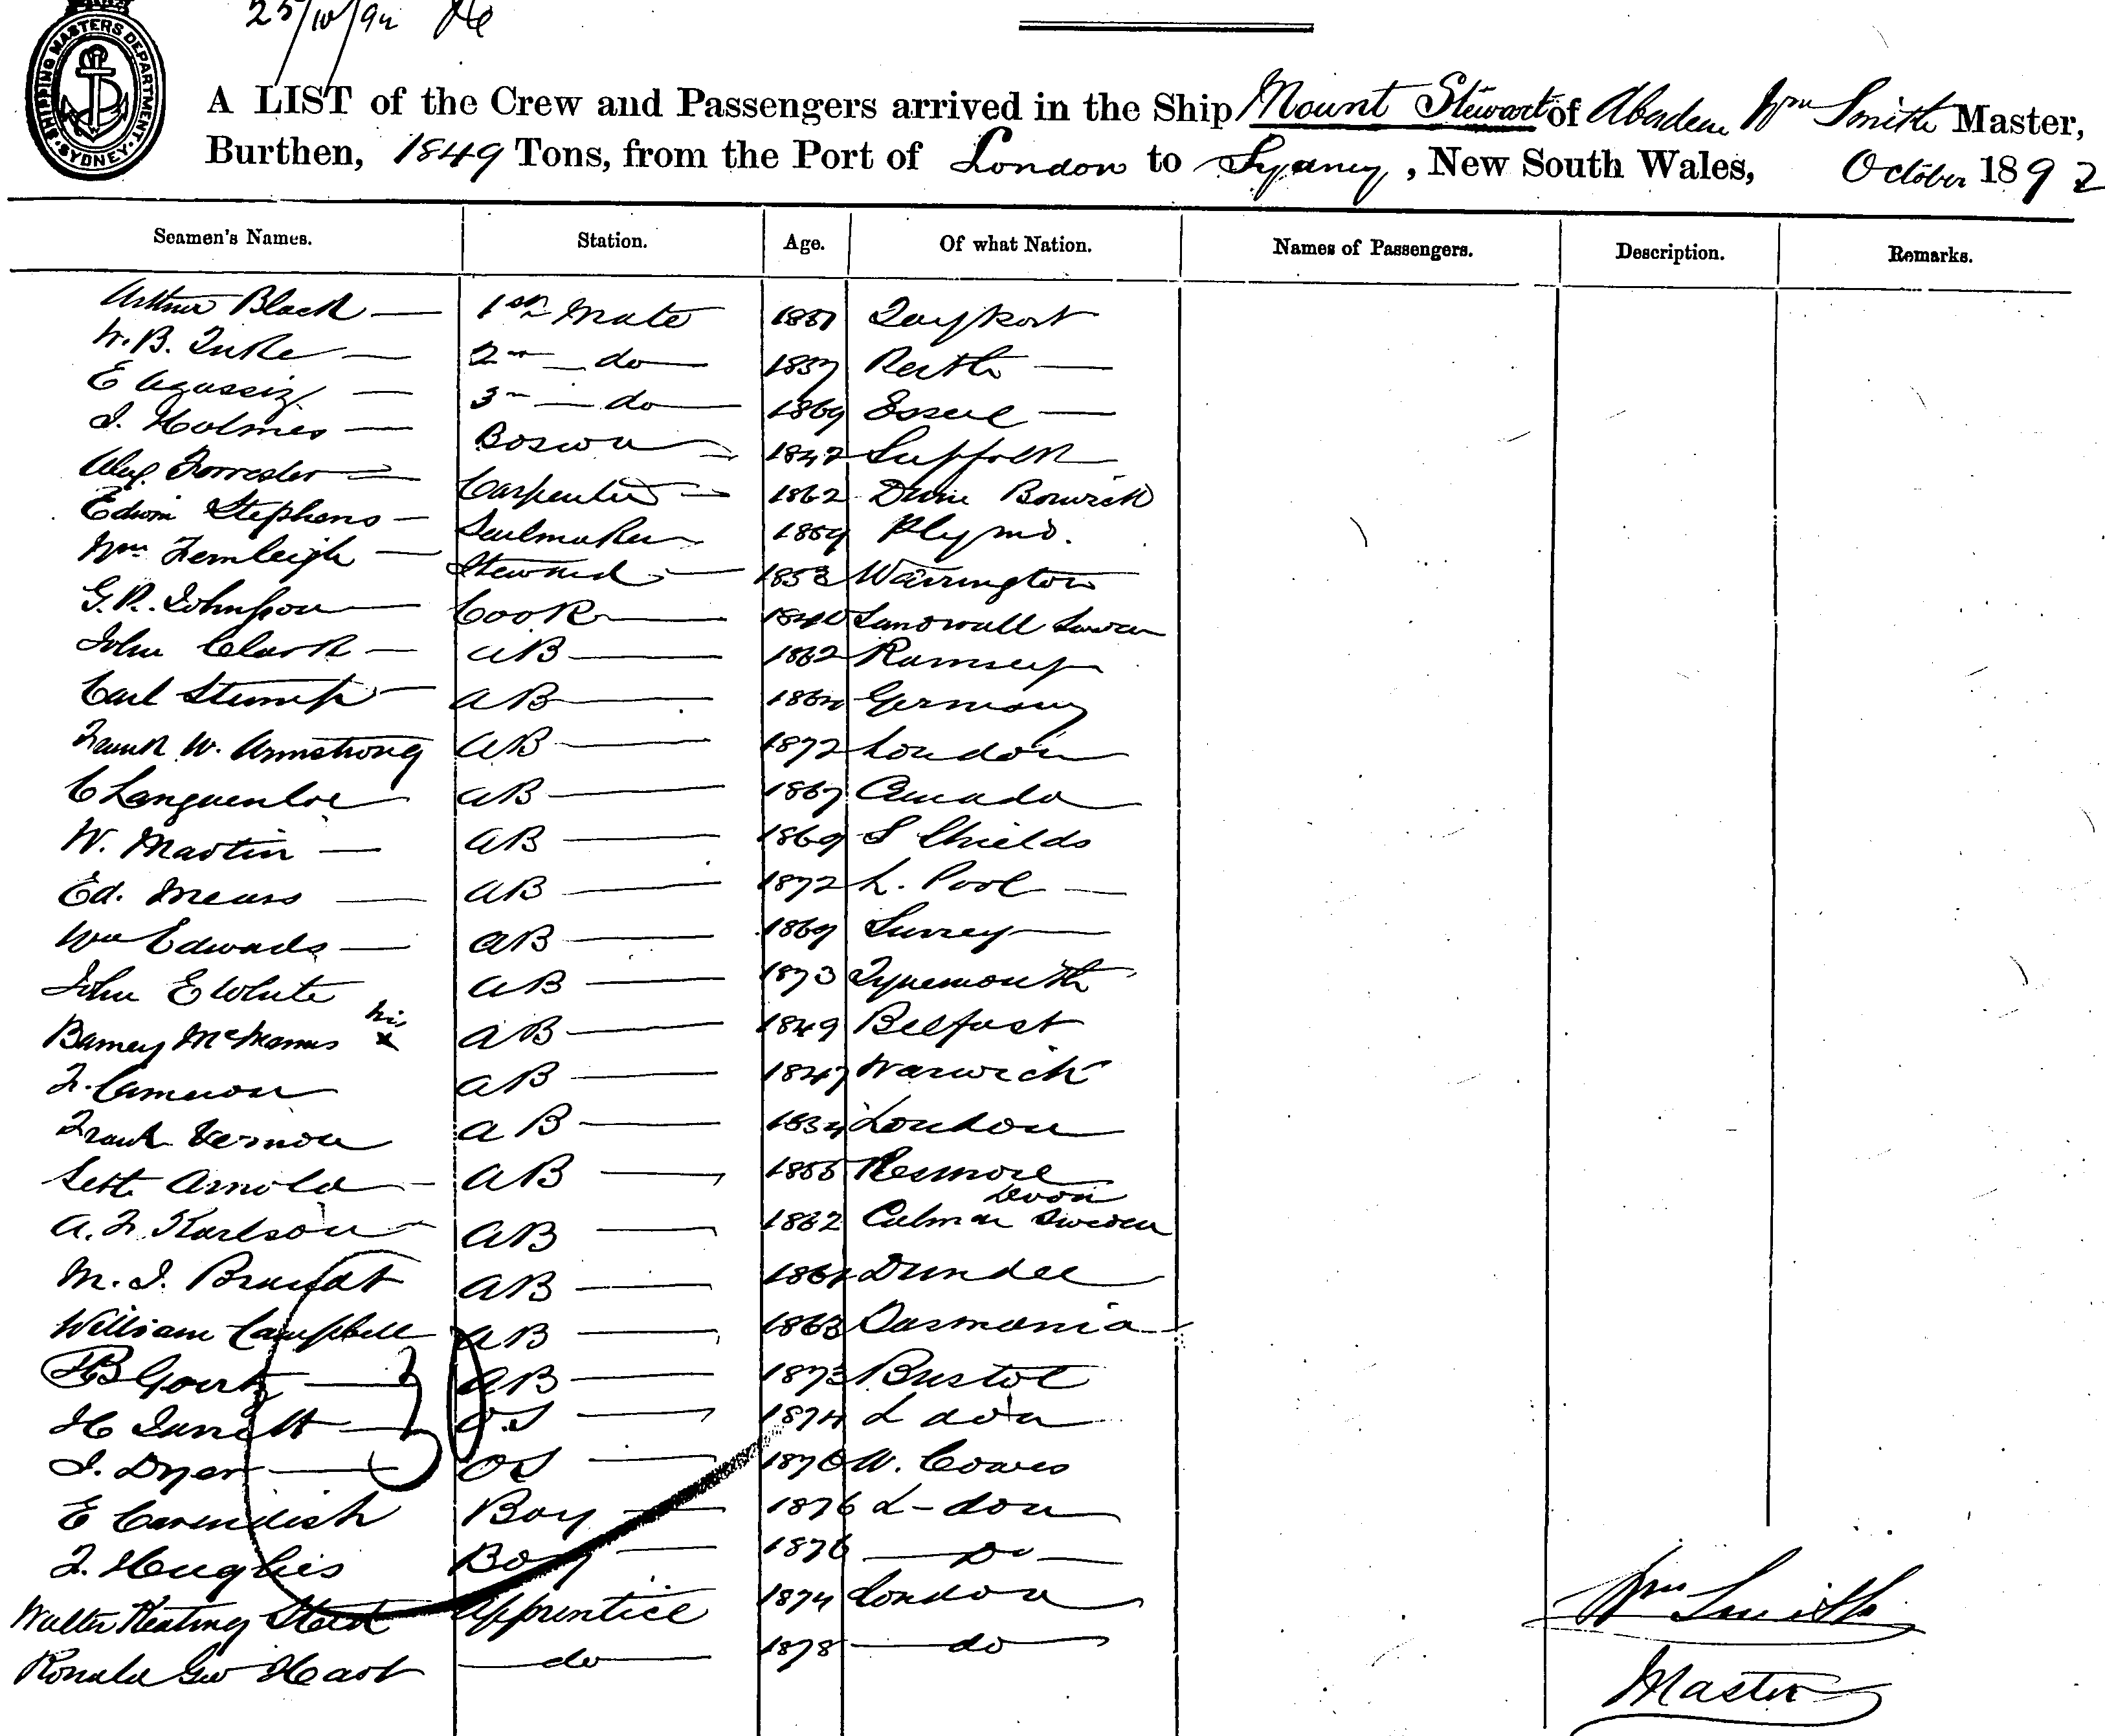 25/10/92
SHIPPING MASTERS DEPARTMENT SYDNEY
A LIST of the Crew and Passengers arrived in the Ship Mount Stewart of Aberdeen Wm Smith Master,
Burthen, 1849 Tons, from the Port of London to Sydney, New South Wales, October 1892
Seamen's Names. Station. Age. Of what Nation. Names of Passengers. Description. Remarks.
Arthur Black 1st Mate 1851 Tayport
W. B. Tuke 2nd do 1837 Perth
E Agassiz 3rd do 1869 Essex
J. Holmes Boswn 1847 Suffolk
Alex. Forrester Carpenter 1862
Edwin Stephens Sailmaker 1859 Plymo.
Wm Fernleigh Steward 1853 Warrington
G. R. Johnsson Cook 1840 Sundswall Sweden
John Clark AB 1862 Ramsey
Carl Stumph AB Germany
Frank W. Armstrong AB 1872 London
C AB 1867 Canada
W. Martin AB 1869 S Shields
Ed. Mears AB 1872 L. Pool
Wm Edwards AB 1869 Surrey
John E White AB 1873 Tynemouth
Barney McManus his x AB 1849 Belfast
F. Cameron AB 1847 Warwick
Frank Vernon AB 1834 London
Seth Arnold AB 1855 Devon
A. F. Karlson AB 1862 Calmar Sweden
M. J. Brandt AB Dundee
William Campbell AB 1863 Tasmania
AB 1873 Bristol
H Jarrett O.S 1874 L don
J. Dyer OS 1876 W. Cowes
E Cavendish Boy 1876 L-don
F. Hughes Boy 1876 Do
Walter Keating Steed Apprentice 1874 London
Ronald Geo Hart do 1878 do
Wm Smith
Master